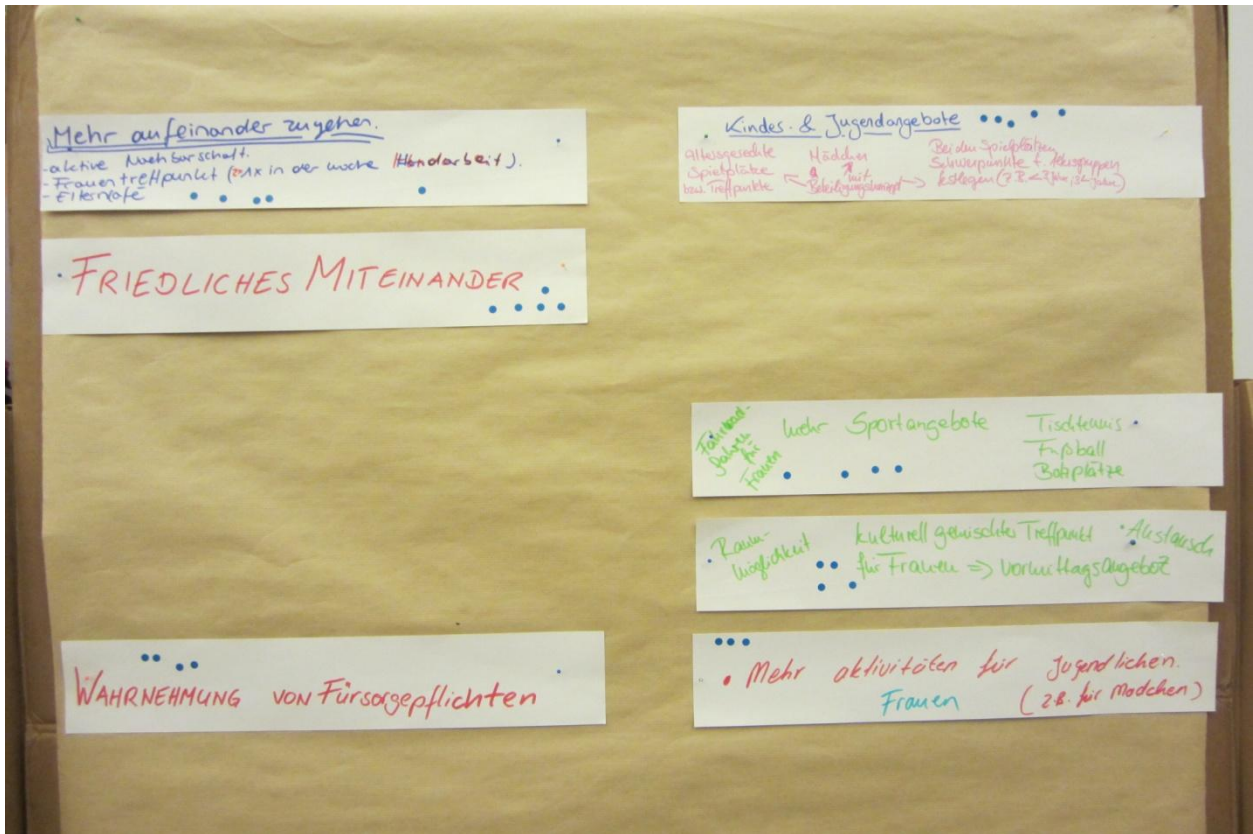 Mehr aufeinander zugehen.
- aktive Nachbarschaft.
- Frauentreffpunkt (1x in der Woche Handarbeit).
- Elterncafé
FRIEDLICHES MITEINANDER
WAHRNEHMUNG VON Fürsorgepflichten
Kindes- & Jugendangebote
altersgerechte
Spielplätze
bzw. Treffpunkte
Mädchen
mit
Beteiligungskonzept
Bei den Spielplätzen
Schwerpunkte f. Altersgruppen
festlegen (z.B.
Fahrrad-
fahren
für
Frauen
mehr Sportangebote
Tischtennis
Fußball
Bolzplätze
Raum-
möglichkeit
kulturell gemischter Treffpunkt
für Frauen => Vormittagsangebot
Austausch
Mehr aktivitäten für Jugendlichen.
Frauen
(z.B. für Mädchen)